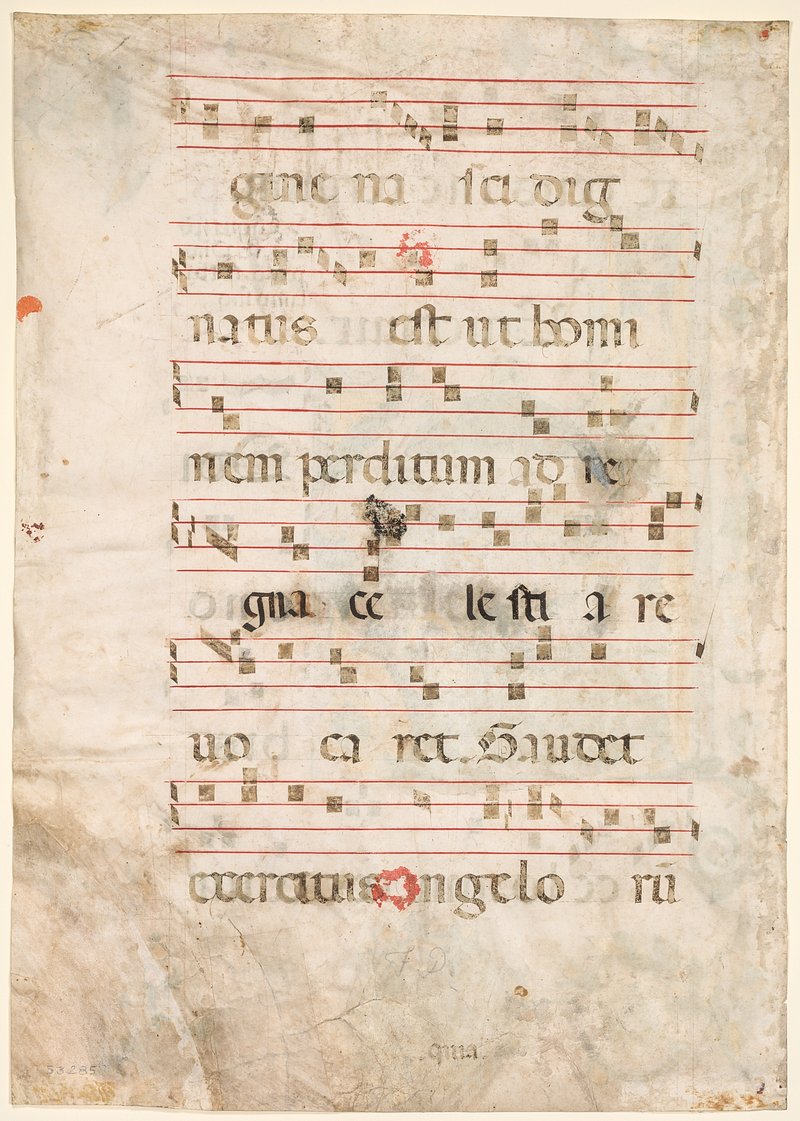 gine na sci dig
natus est ut homi
nem perditum ad re
gna ce le sti a re
uo ca ret. Gaudet
exercitus angelo rū
F D
quia
53.285